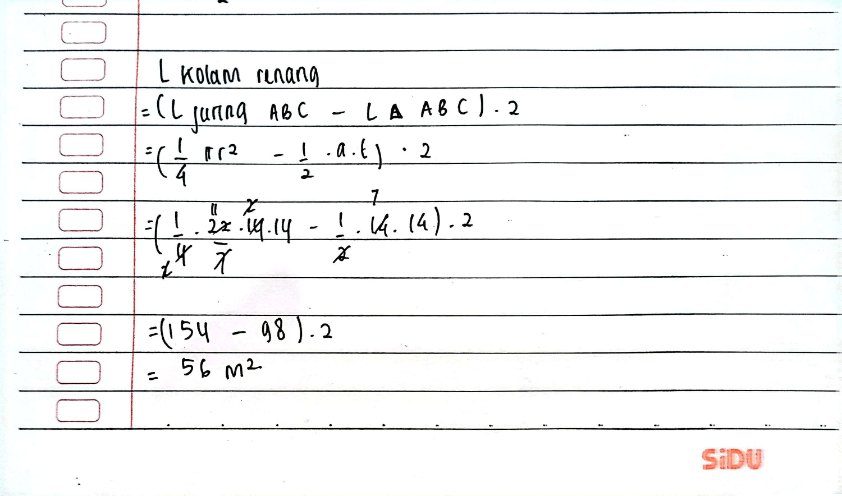 L kolam renang
= (L juring ABC - L Δ ABC) . 2
= (1/4 πr2 - 1/2 . a.t) . 2
= (1/4 . 22/7 . 14.14 - 1/2 . 14. 14) . 2
= (154 - 98) . 2
= 56 m²
SiDU